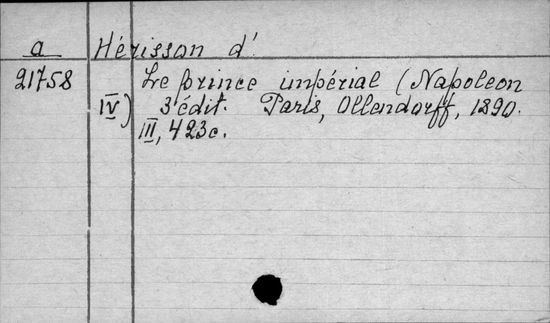 a Hérisson d'
21758 Le prince impérial (Napoleon
IV) 3 édit. Paris, Ollendorff, 1890.
III, 423c.